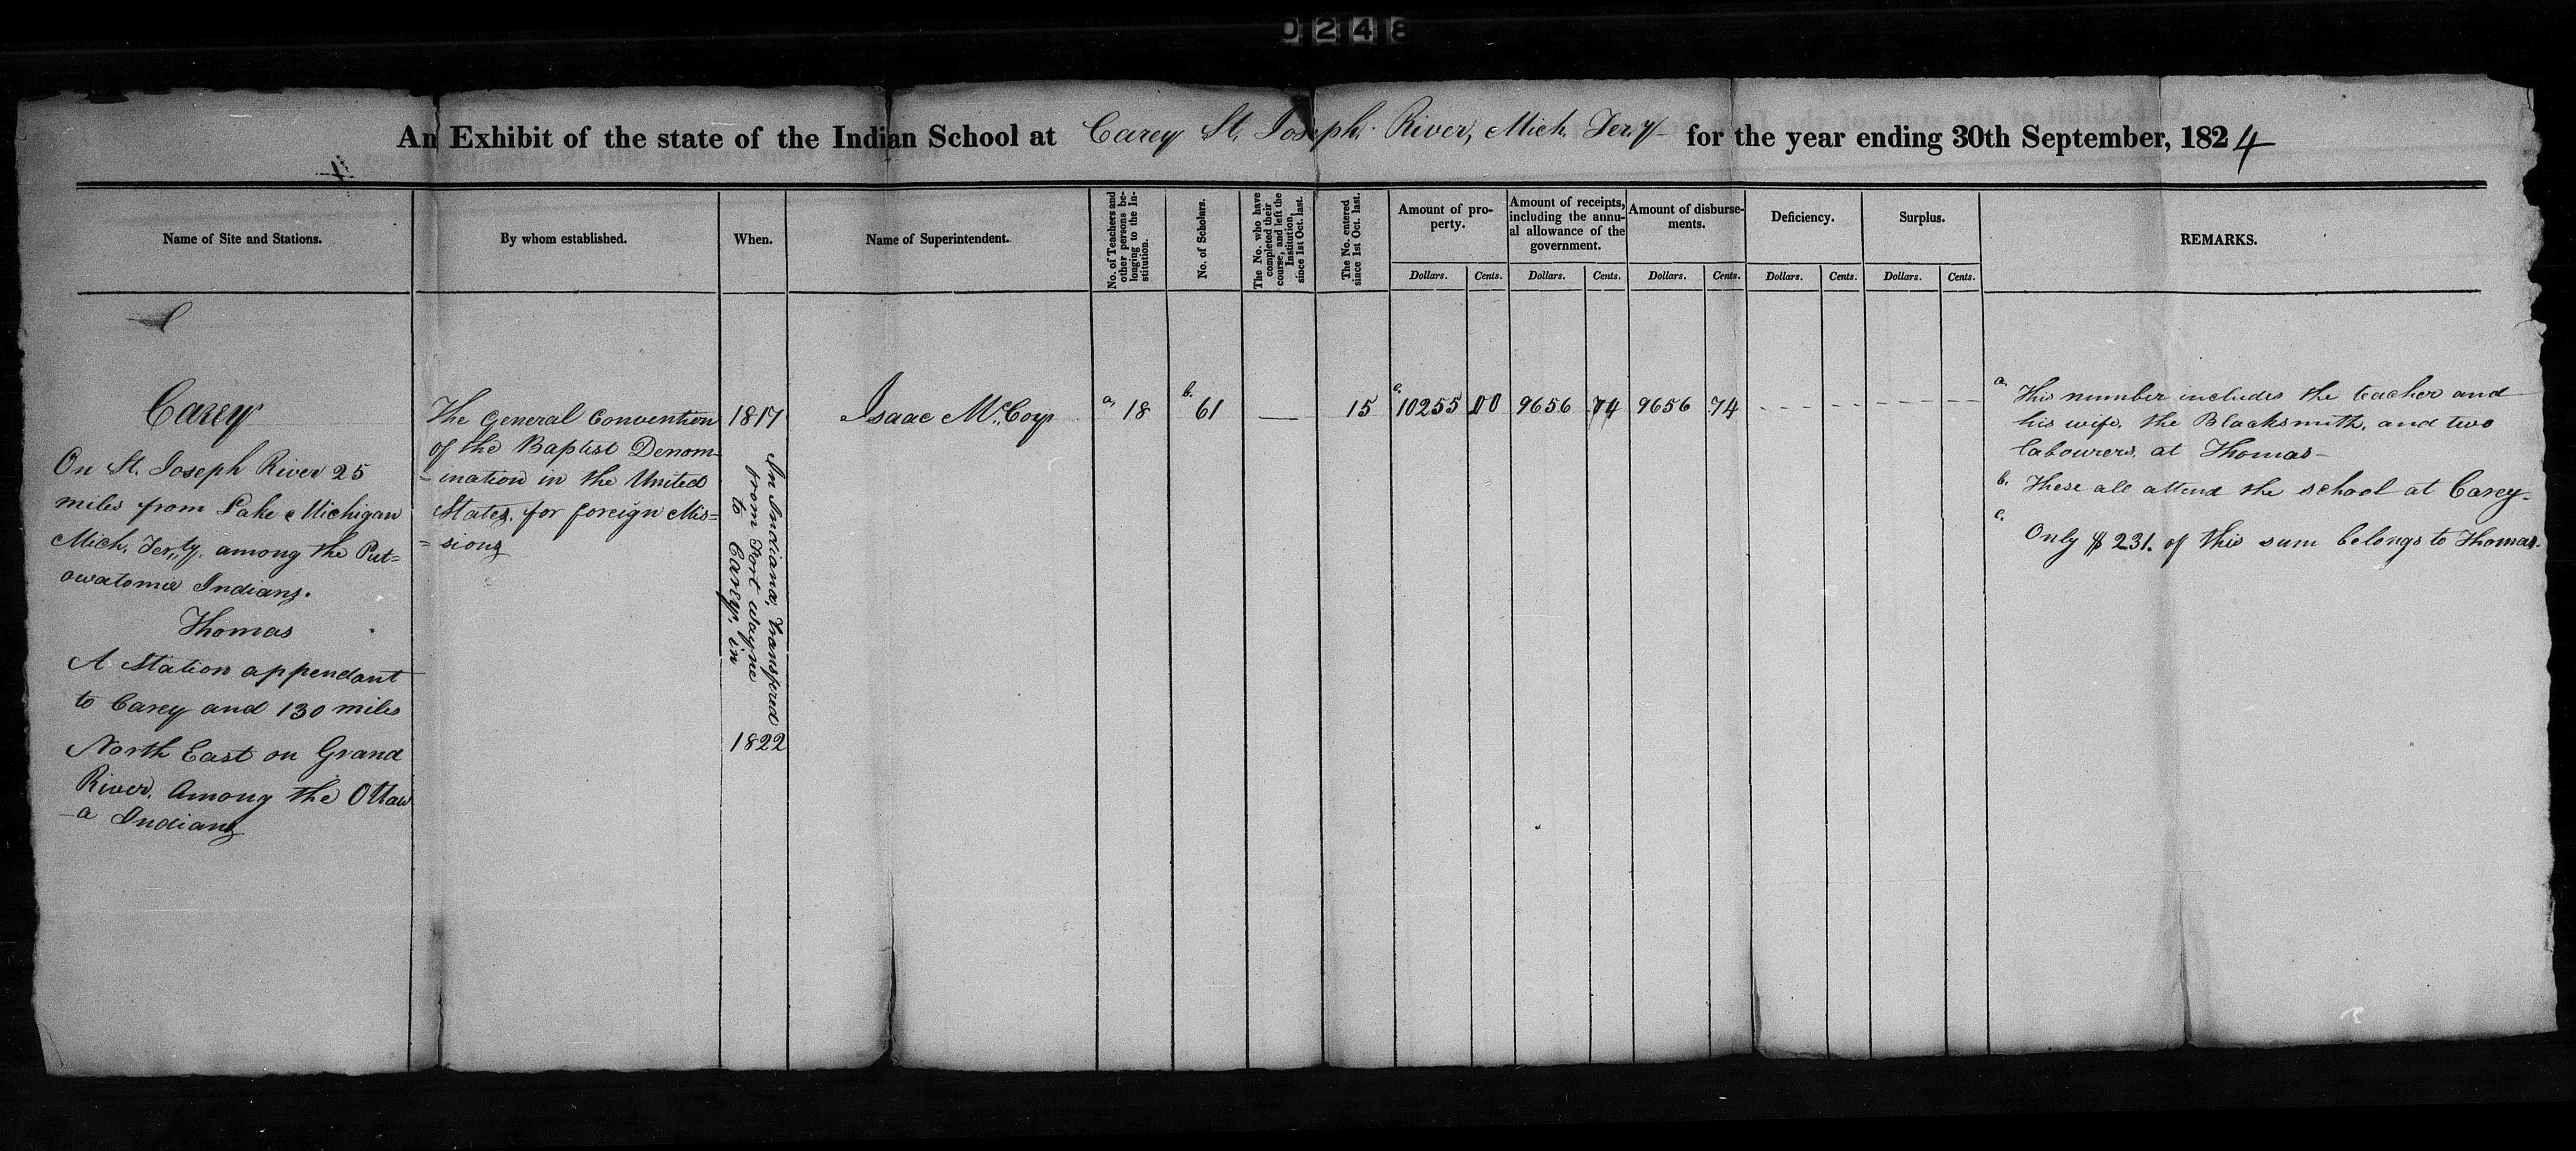 0248
An Exhibit of the state of the Indian School at Carey St. Joseph River, Mich. Ter.y for the year ending 30th September, 1824
Name of Site and Stations.
By whom established.
When.
Name of Superintendent.
No. of Teachers and
other persons be-
longing to the In-
stitution.
No. of Scholars.
The No. who have
completed their
course, and left the
Institution,
since 1st Oct. last.
The No. entered
since 1st Oct. last.
Amount of pro-
perty.
Amount of receipts,
including the annu-
al allowance of the
government.
Amount of disburse-
ments.
Deficiency.
Surplus.
REMARKS.
Dollars. Cents. Dollars. Cents. Dollars. Cents. Dollars. Cents. Dollars. Cents.
Carey
On St. Joseph River 25
miles from Lake Michigan
Mich. Ter.ty. among the Put=
owatomie Indians.
Thomas
A Station appendant
to Carey and 130 miles
North East on Grand
River. Among the Ottaw
-a Indians
The General Convention
of the Baptist Denom-
-ination in the United
States, for foreign Mis=
=sions
1817
In Indiana, transfered
from Fort Wayne
to Carey, in
1822
Isaac McCoy
a. 18
b. 61
—
15
c. 10255 00
9656 74
9656 74
a. This number includes the teacher and
his wife, the Blacksmith, and two
labourers, at Thomas—
b. These all attend the school at Carey.
c.
Only $231. of this sum belongs to Thomas.